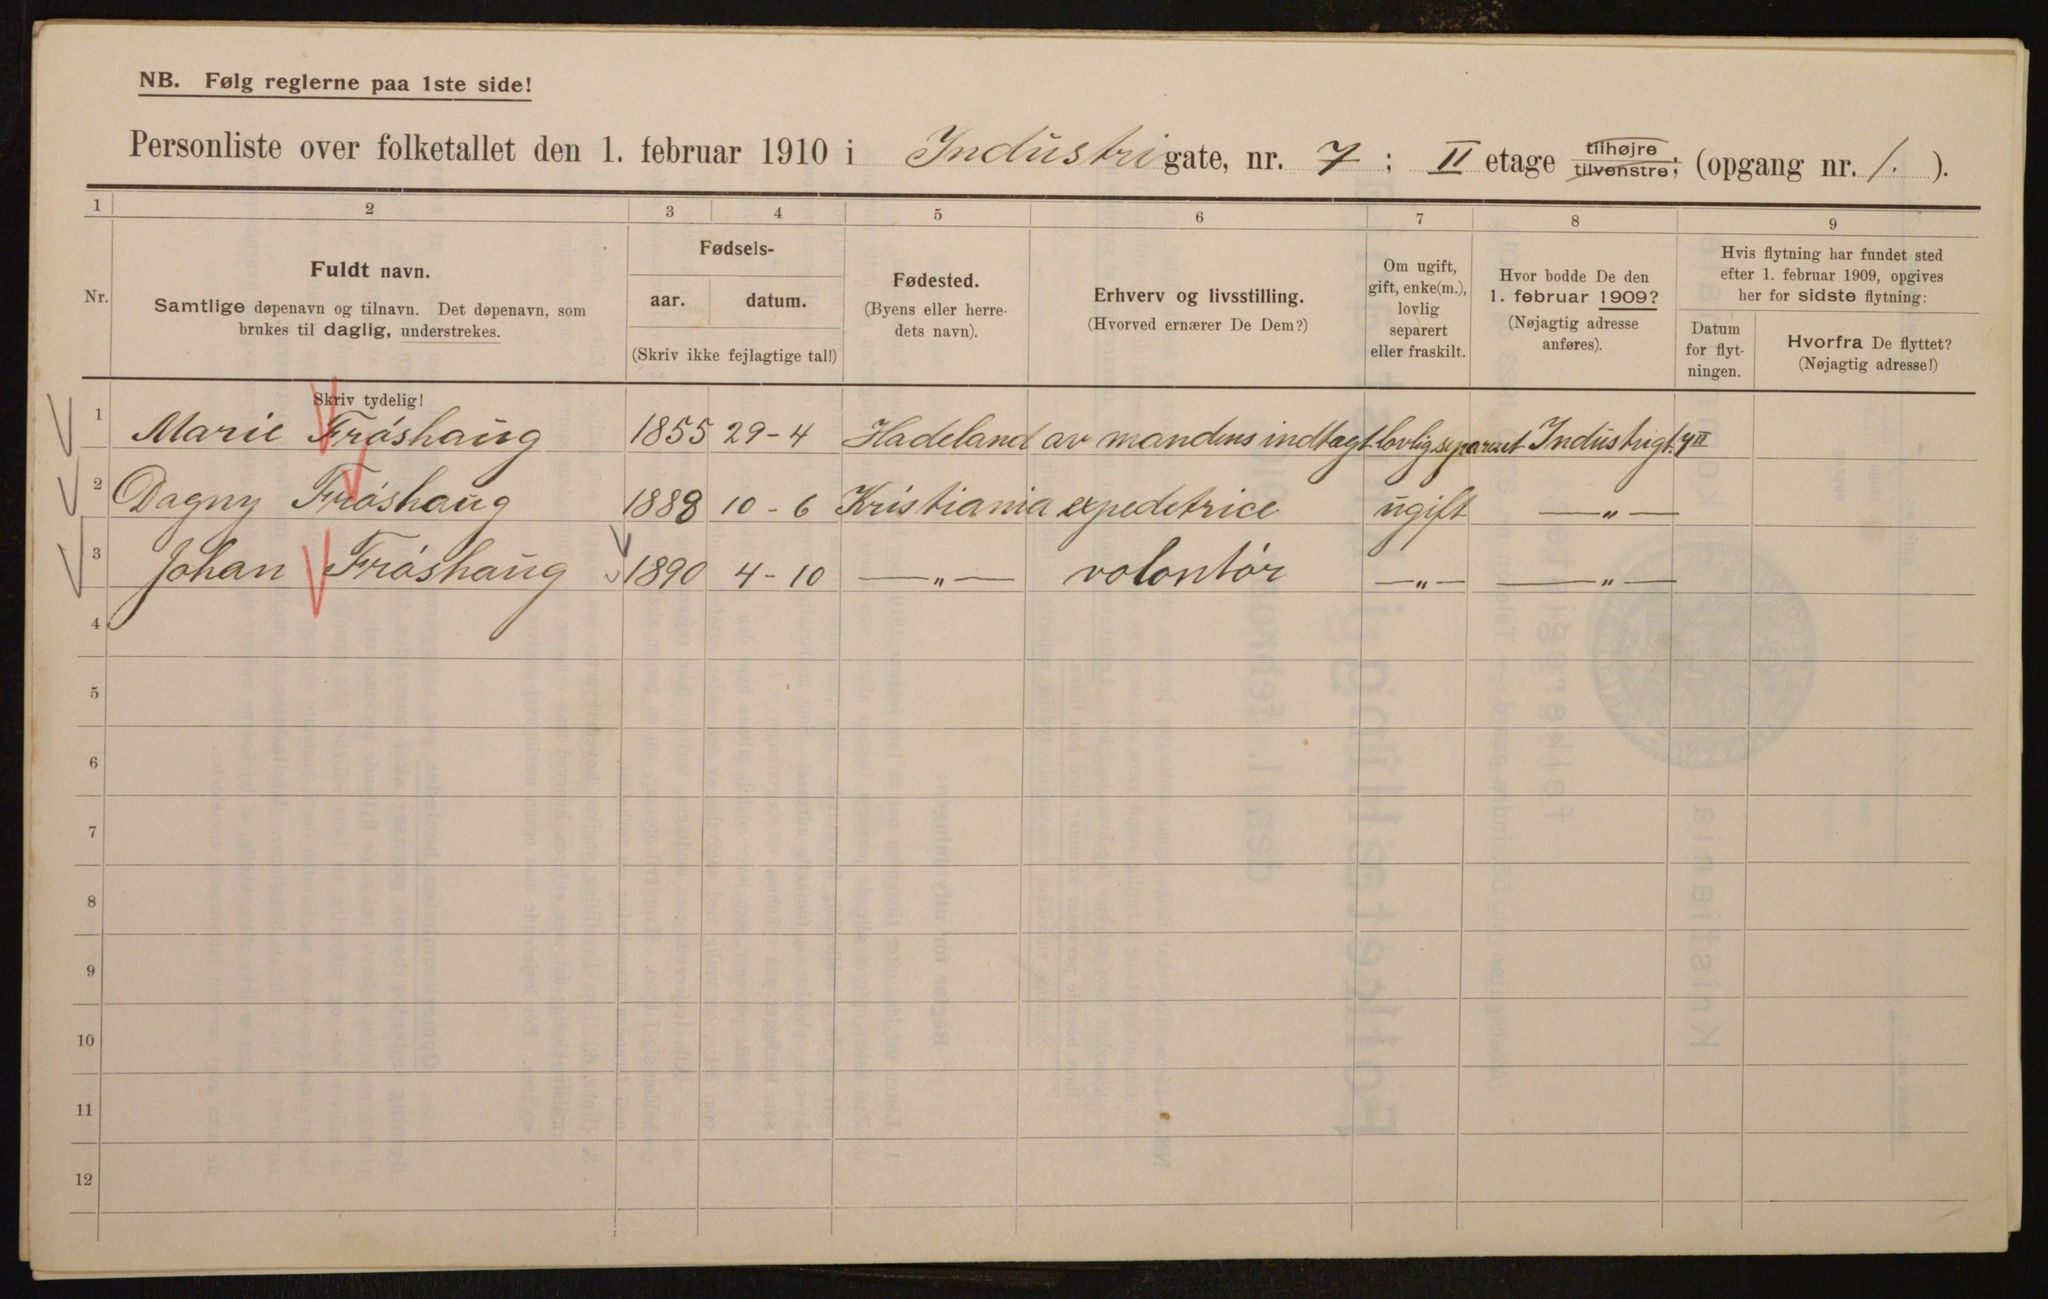 NB. Følg reglerne paa 1ste side!
Personliste over folketallet den 1. februar 1910 i Industrigate, nr. 7; II etage tilhøjre tilvenstre; (opgang nr. 1. ).
1 2 3 4 5 6 7 8 9
Nr.
Fuldt navn.
Samtlige døpenavn og tilnavn. Det døpenavn, som
brukes til daglig, understrekes.
Skriv tydelig!
Fødsels-
aar. datum.
(Skriv ikke fejlagtige tal!)
Fødested.
(Byens eller herre-
dets navn).
Erhverv og livsstilling.
(Hvorved ernærer De Dem?)
Om ugift,
gift, enke(m.),
lovlig
separert
eller fraskilt.
Hvor bodde De den
1. februar 1909?
(Nøjagtig adresse
anføres).
Hvis flytning har fundet sted
efter 1. februar 1909, opgives
her for sidste flytning:
Datum
for flyt-
ningen.
Hvorfra De flyttet?
(Nøjagtig adresse!)
1 Marie Frøshaug 1855 29-4 Hadeland av mandens indtagt lovlig separert Industrigt. 7 II
2 Dagny Frøshaug 1888 10-6 Kristiania expedetrice ugift —"—
3 Johan Frøshaug 1890 4-10 —"— volontør —"— —"—
4
5
6
7
8
9
10
11
12